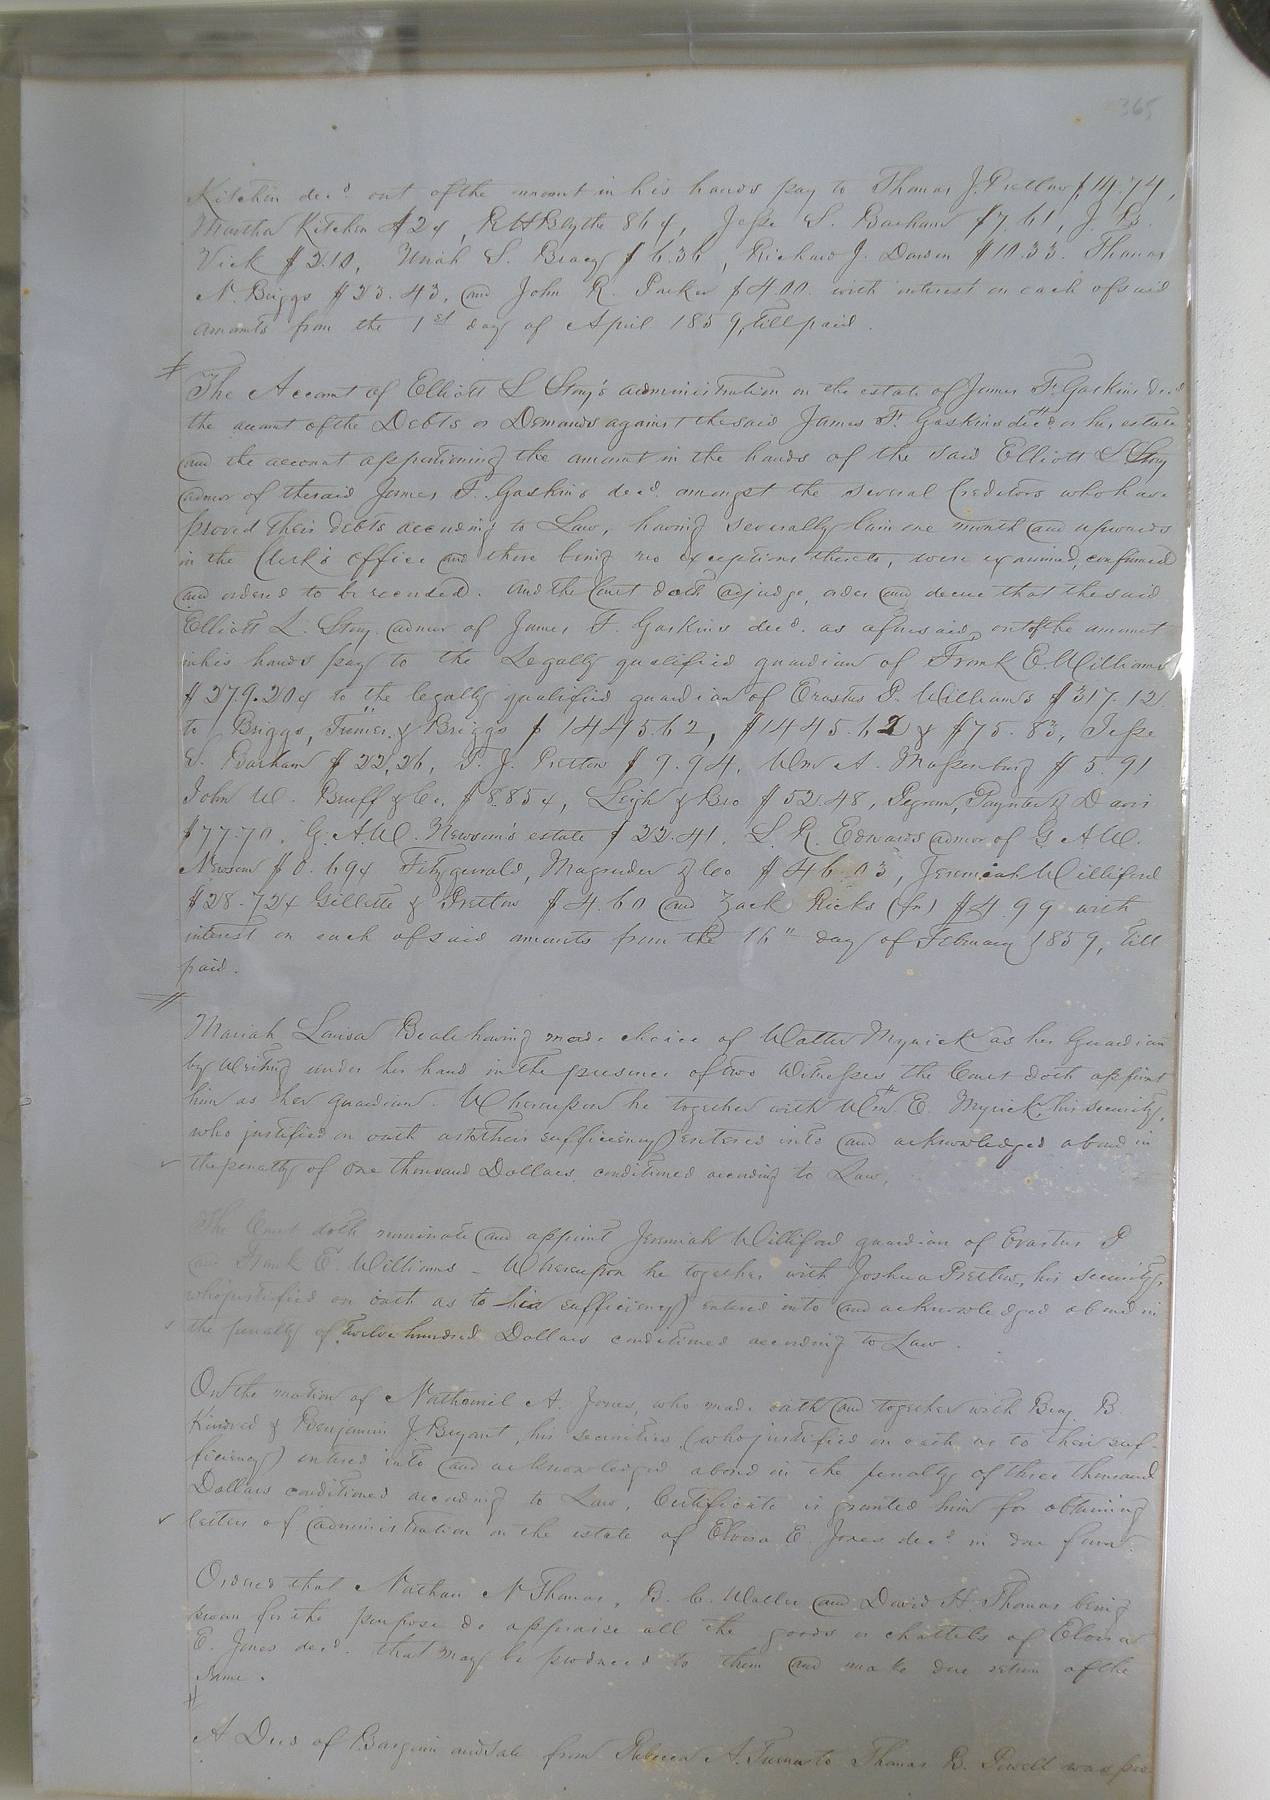 365
Kitchen dec.d out of the amount in his hands pay to Thomas J. Pretlow $14.74,
Martha Kitchen $24, R H Blythe 864, Jesse S. Barham $7.61, J. B.
Vick $2.10, Uriah S. Bracy $6.36, Richard J. Darden $10.33. Thomas
N. Briggs $23.43, and John R. Parker $4.00 with interest on each of said
amounts from the 1st day of April 1859, till paid.
The Account of Elliott L Story's administration on the estate of James F. Gaskins dec.d
the account of the Debts or Demands against the said James F. Gaskins dec.d or his estate
and the account apportioning the amount in the hands of the said Elliott L Story
admor of the said James F. Gaskins dec.d amongst the several Creditors who have
proved their debts according to Law, having severally lain one month and upwards
in the Clerk's office and there being no exceptions thereto, were examined, confirmed
and ordered to be recorded. And the Court doth adjudge, order and decree that the said
Elliott L. Story admor of James F. Gaskins dec.d as aforesaid, out of the amount
in his hands pay to the Legally qualified guardian of Frank E. Williams
$279.204 to the legally qualified guardian of Erastus P. Williams $317.12
to Briggs, Turner & Briggs $1445.62, $1445.62 & $75.83, Jesse
S. Barham $22,26, T. J. Pretlow $9.94, Wm A. Massenburg $5.91
John W. Bruff & Co. $8.854, Leigh & Bro $52.48, Pegram, Paynter & Davis
$77.70, G. A. W. Newsom's estate $22.41, L. R. Edwards admor of G A W.
Newsom $0.694 Fitzgerald, Magruder & Co $46.03, Jeremiah Williford
$28.724 Gillette & Pretlow $4.60 and Zack Ricks (fn) $4.99 with
interest on each of said amounts from the 16" day of February 1859, till
paid.
Mariah Louisa Beale having made choice of Walter Myrick as her Guardian
by Writing under her hand in the presence of two Witnesses the Court doth appoint
him as her guardian. Whereupon he together with Wm E. Myrick, his security,
who justified on oath as to their sufficiency) entered into and acknowledged a bond in
the penalty of one thousand Dollars, conditioned according to Law.
The Court doth nominate and appoint Jeremiah Williford guardian of Erastus P
and Frank E. Williams – Whereupon he together with Joshua Pretlow, his security,
who justified on oath as to his sufficiency) entered into and acknowledged a bond in
the penalty of twelve hundred Dollars conditioned according to Law.
On the motion of Nathaniel A. Jones, who made oath and together with Benj. B.
Kindred & Benjamin J. Bryant, his securities (who justified on oath as to their suf-
ficiency) entered into and acknowledged a bond in the penalty of three thousand
Dollars conditioned according to Law, Certificate is granted him for obtaining
letters of administration on the estate of Elvira E. Jones dec.d in due form.
Ordered that Nathan N Thomas, B. C. Waller and David H Thomas being
sworn for the purpose do appraise all the goods or chattels of Elvira
E. Jones dec.d that may be produced to them and make due return of the
same.
A Deed of Bargain and Sale from Rebecca A. Turner to Thomas B. Powell was pro